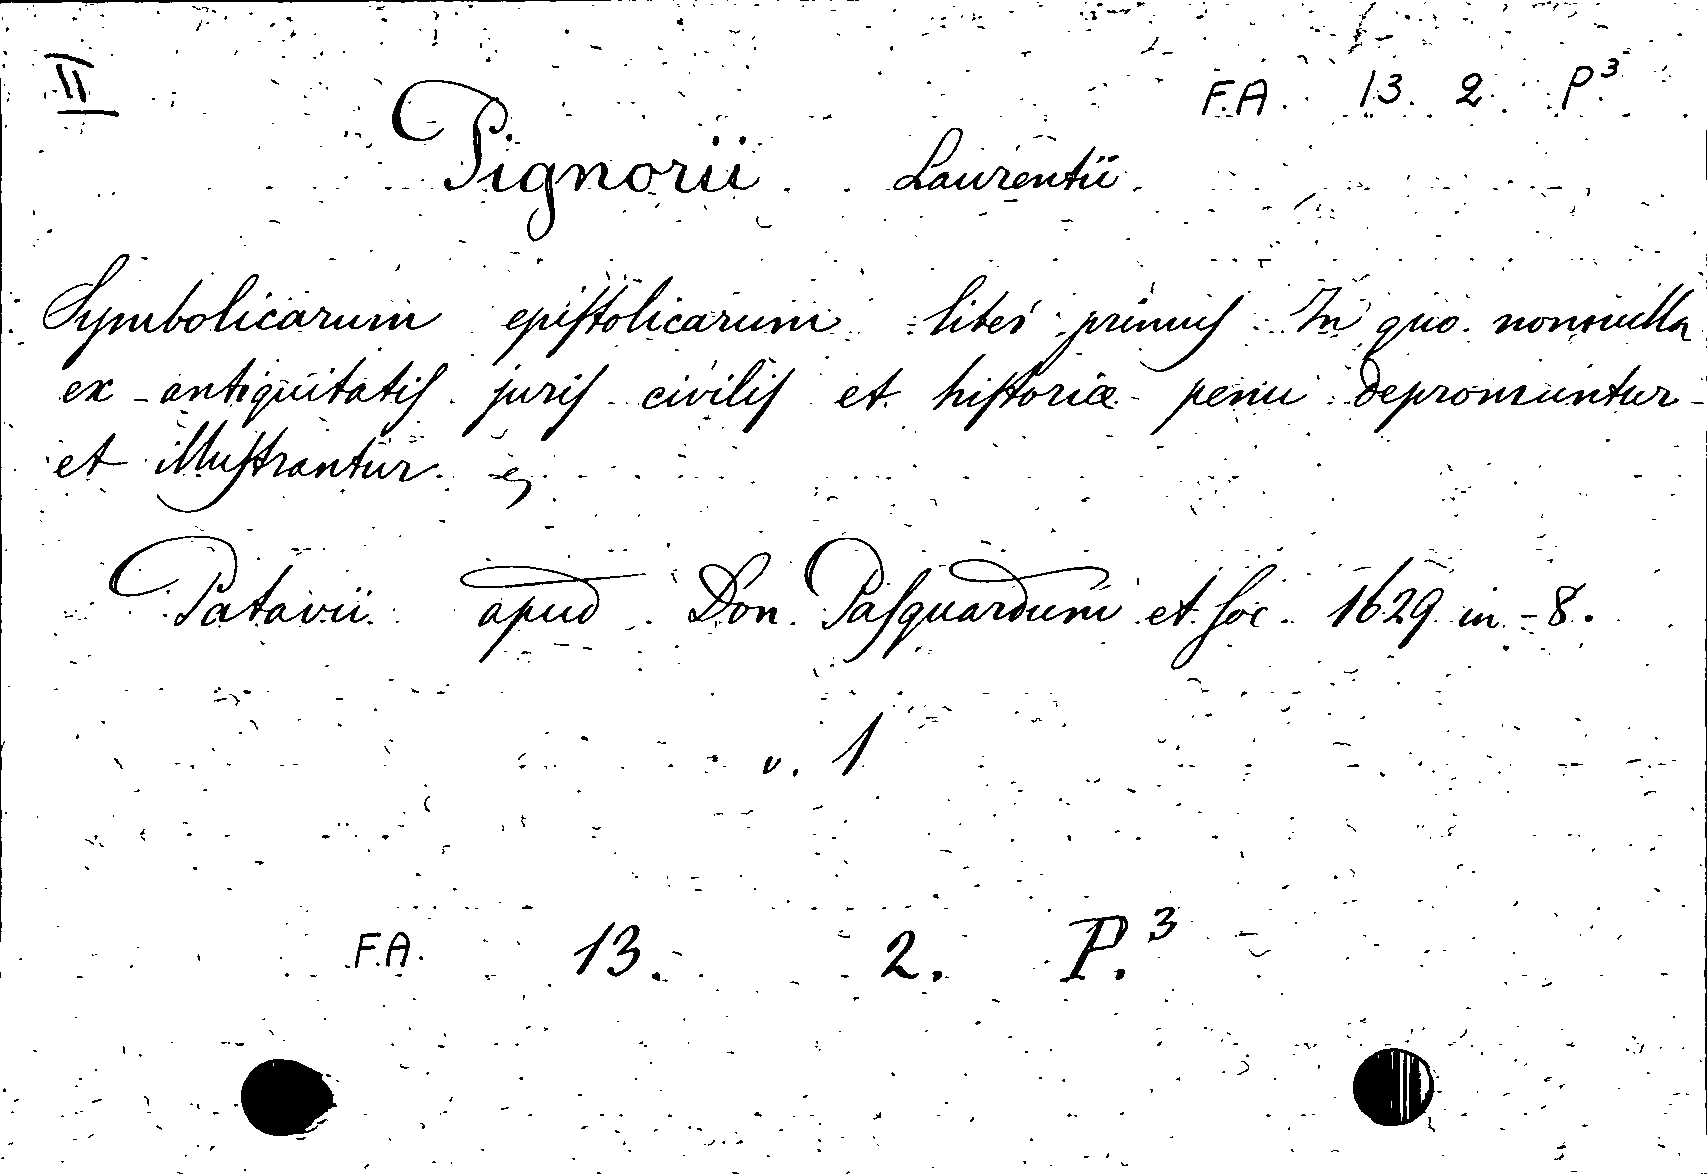 II
F.A. 13. 2. P.³
Pignorii Laurentii.
Symbolicarum epistolicarum liber primus In quo nonnulla
ex antiquitatis juris civilis et historiæ penu depromuntur
et illustrantur.
Patavii apud Don. Pasquardum et soc. 1629 in-8.
v. 1
F.A. 13. 2. P.³